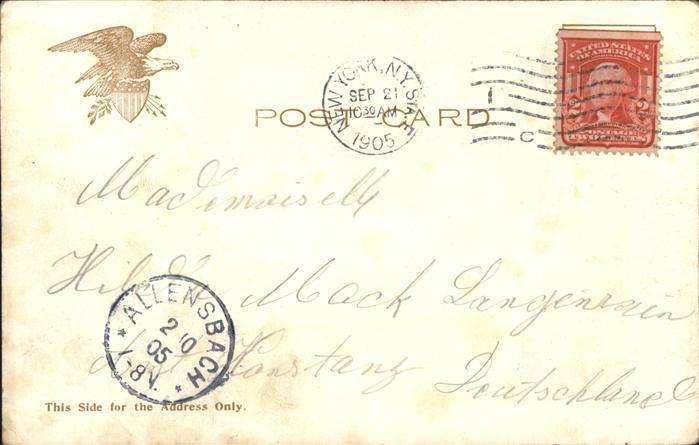 NEW YORK, N.Y. STA. E
SEP 21
10 30 AM
1905
1
C
UNITED STATES
OF AMERICA
2 2
POSTAGE
TWO CENTS
POST CARD
Mademoiselle
Hilda Mack Langenrain
Konstanz Deutschland
ALLENSBACH
2 10
05
7-8V.
This Side for the Address Only.